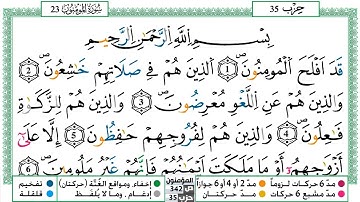 23 سُورَةُ المُومِنُون
حِزْب 35
بِسْمِ اللَّهِ الرَّحْمَٰنِ الرَّحِيمِ
قَدَ اَفْلَحَ الْمُومِنُونَ 1 الَّذِينَ هُمْ فِي صَلَاتِهِمْ خَٰشِعُونَ 2
وَالَّذِينَ هُمْ عَنِ اللَّغْوِ مُعْرِضُونَ 3 وَالَّذِينَ هُمْ لِلزَّكَوٰةِ
فَٰعِلُونَ 4 وَالَّذِينَ هُمْ لِفُرُوجِهِمْ حَٰفِظُونَ 5 إِلَّا عَلَىٰ
أَزْوَٰجِهِمُ أَوْ مَا مَلَكَتَ اَيْمَٰنُهُمْ فَإِنَّهُمْ غَيْرُ مَلُومِينَ 6
مدّ 6 حركات لزوماً مدّ 2 أو 4 أو 6 جوازاً إخفاء، ومواقع الغُنَّة (حركتان) تفخيم
مدّ مشبع 6 حركات مدّ حركتان إدغام، وما لا يُلفظ قلقلة
المؤمنون
ص 342
حزب 35